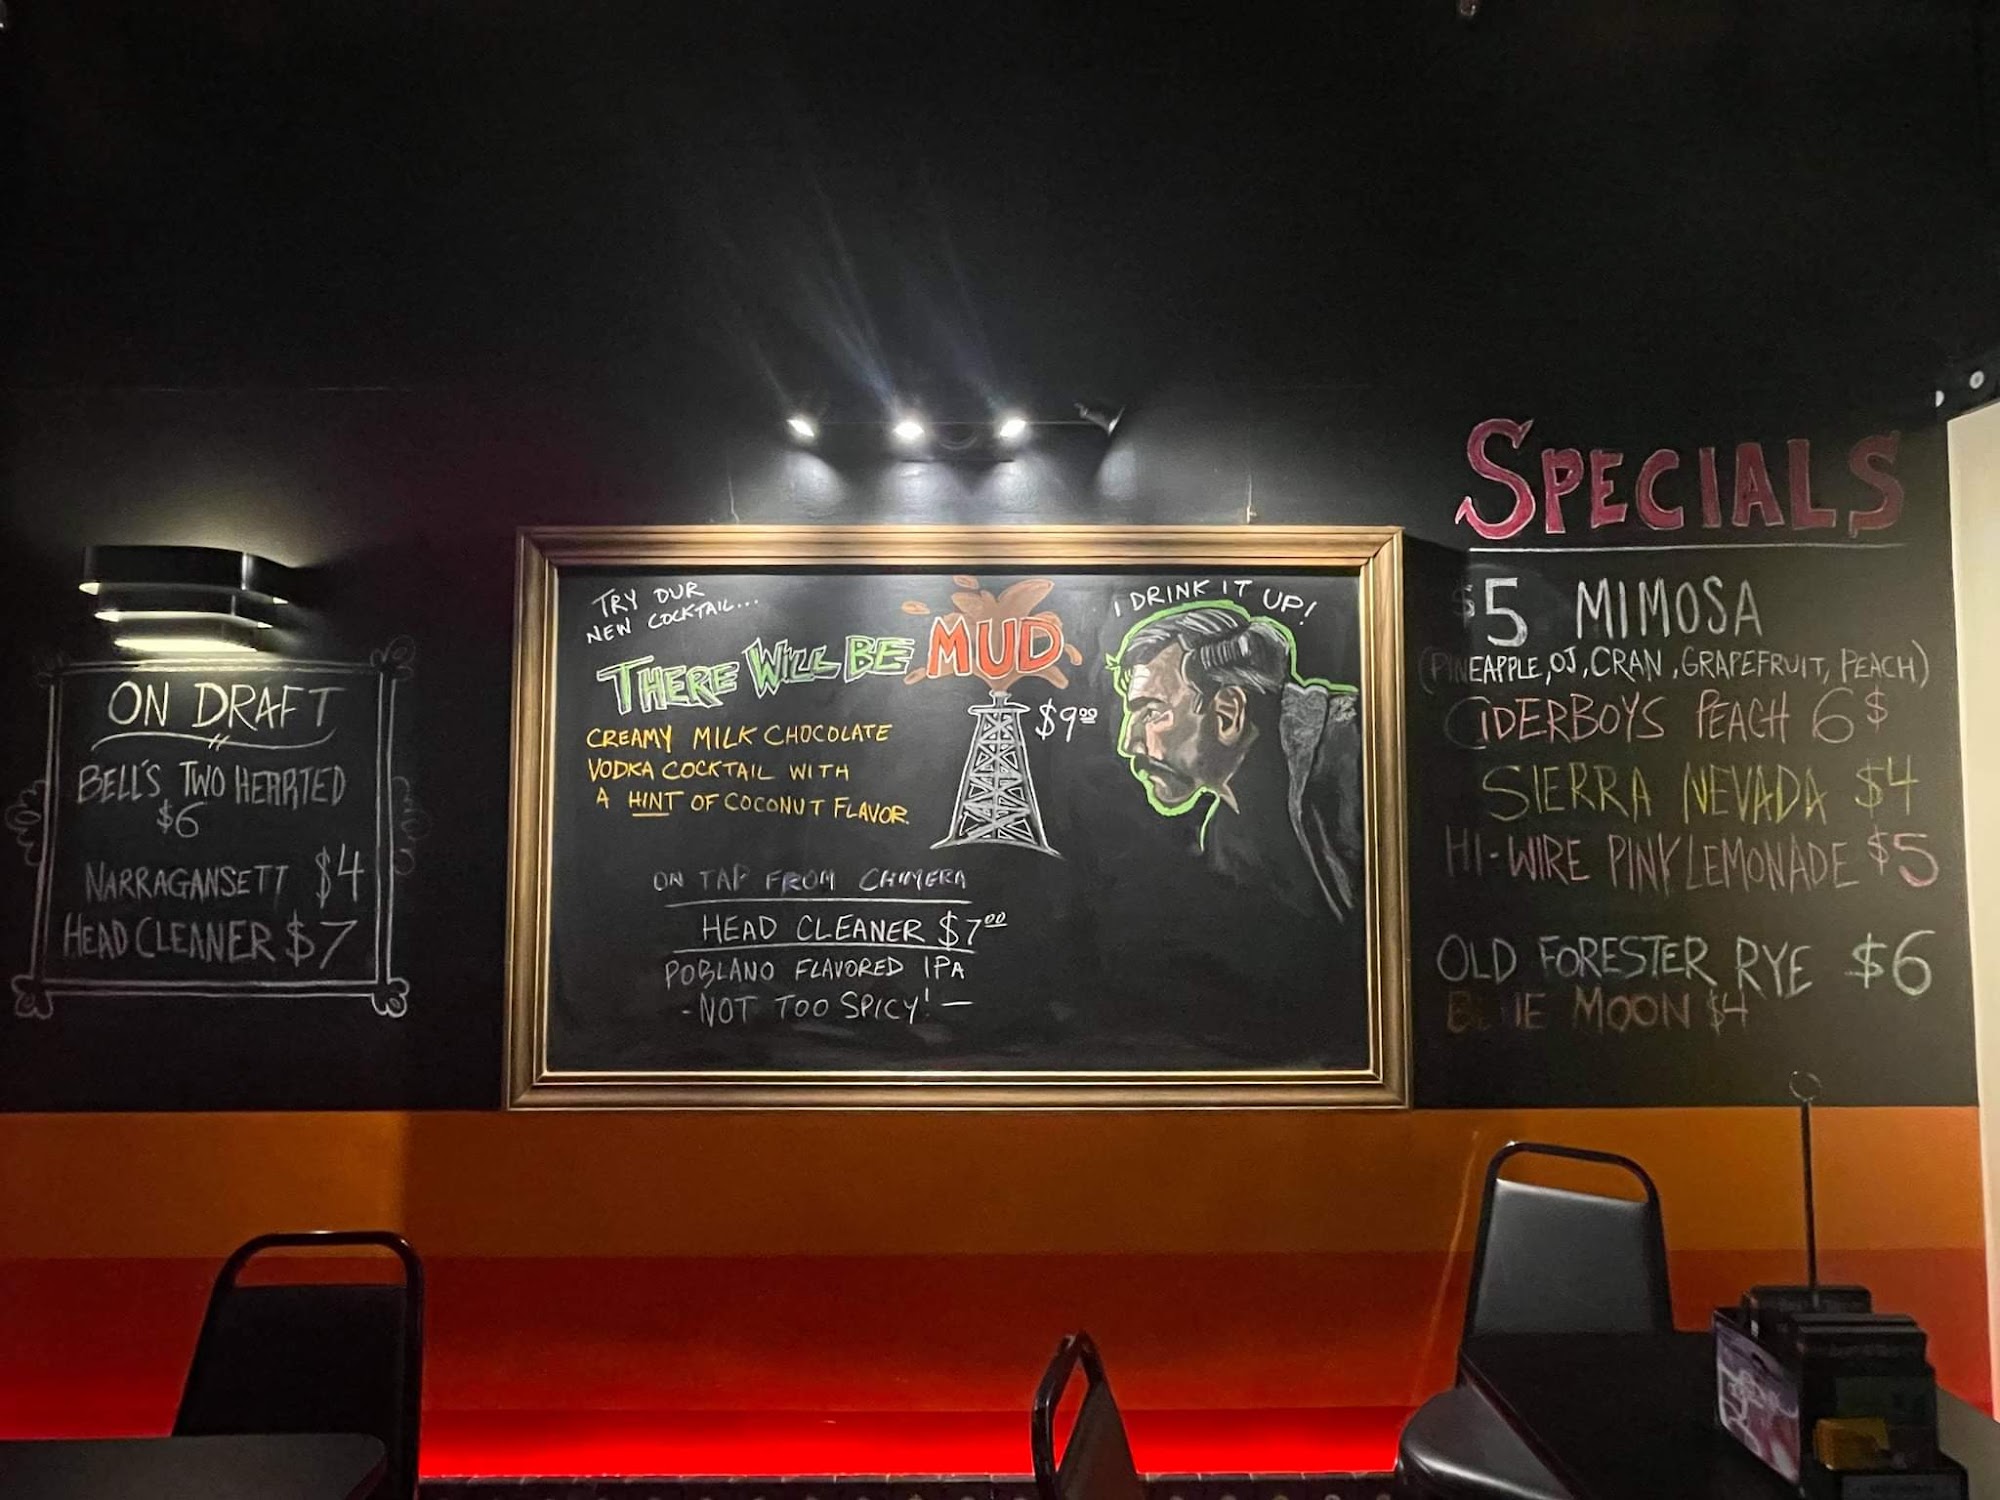 ON DRAFT
BELL'S TWO HEARTED
$6
NARRAGANSETT $4
HEAD CLEANER $7
TRY OUR
NEW COCKTAIL...
THERE WILL BE MUD
$9.00
CREAMY MILK CHOCOLATE
VODKA COCKTAIL WITH
A HINT OF COCONUT FLAVOR.
I DRINK IT UP!
ON TAP FROM CHIMERA
HEAD CLEANER $7.00
POBLANO FLAVORED IPA
- NOT TOO SPICY! -
SPECIALS
$5 MIMOSA
(PINEAPPLE, OJ, CRAN, GRAPEFRUIT, PEACH)
CIDERBOYS PEACH 6$
SIERRA NEVADA $4
HI-WIRE PINK LEMONADE $5
OLD FORESTER RYE $6
BLUE MOON $4